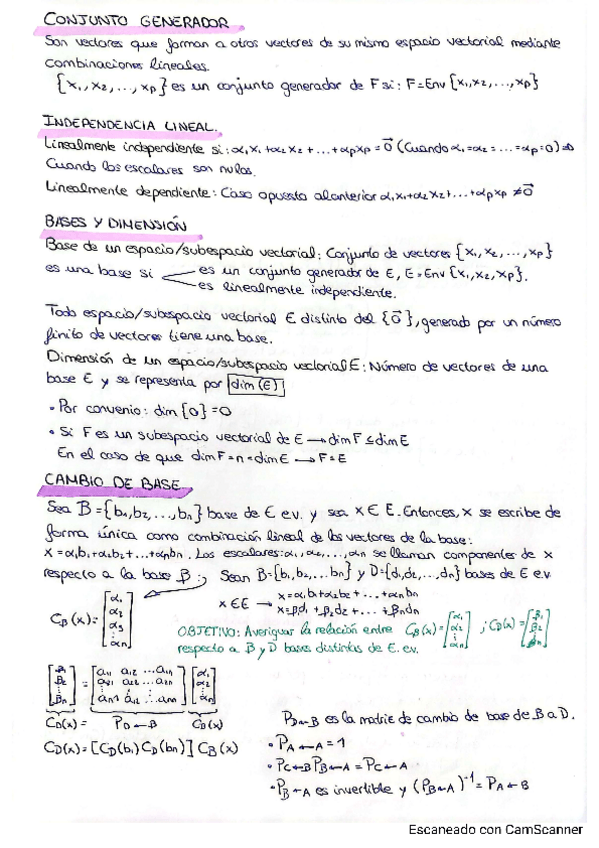 CONJUNTO GENERADOR
Son vectores que forman a otros vectores de su mismo espacio vectorial mediante
combinaciones lineales.
{x₁, x₂, ..., xp} es un conjunto generador de F si: F=Env {x₁,x₂,...,xp}
INDEPENDENCIA LINEAL.
Linealmente independiente si: α₁x₁+α₂x₂+...+αpxp=0⃗ (Cuando α₁=α₂=...=αp=0)⇒
Cuando los escalares son nulos.
Linealmente dependiente: Caso opuesto al anterior α₁x₁+α₂x₂+...+αpxp ≠0⃗
BASES Y DIMENSIÓN
Base de un espacio/subespacio vectorial: Conjunto de vectores {x₁, x₂, ..., xp}
es una base si es un conjunto generador de E, E=Env {x₁,x₂,xp}.
es linealmente independiente.
Todo espacio/subespacio vectorial E distinto del {0⃗}, generado por un número
finito de vectores tiene una base.
Dimensión de un espacio/subespacio vectorial E: Número de vectores de una
base E y se representa por dim(E)
• Por convenio: dim{0}=0
• Si F es un subespacio vectorial de E → dimF≤dimE
En el caso de que dimF=n=dimE → F=E
CAMBIO DE BASE
Sea B={b₁,b₂,...,bn} base de E e.v. y sea x∈E. Entonces, x se escribe de
forma única como combinación lineal de los vectores de la base:
x=α₁b₁+α₂b₂+...+αnbn. Los escalares: α₁,α₂,...,αn se llaman componentes de x
respecto a la base B; Sean B={b₁,b₂,...bn} y D={d₁,d₂,...,dn} bases de E e.v
x∈E → x=α₁b₁+α₂b₂+...+αnbn
x=β₁d₁+β₂d₂+...+βndn
CB(x)=[α₁ α₂ α₃ ⋮ αn]
OBJETIVO: Averiguar la relación entre CB(x)=[α₁ α₂ ⋮ αn] ; CD(x)=[β₁ β₂ ⋮ βn]
respecto a B y D bases distintas de E. ev.
[β₁ β₂ ⋮ βn] = [a₁₁ a₁₂ ...a₁n
a₂₁ a₂₂ ...a₂n
⋮
an1 an2 ...ann] [α₁ α₂ ⋮ αn]
CD(x)= PD←B CB(x)
CD(x)=[CD(b₁) CD(bn)] CB(x)
PD←B es la matriz de cambio de base de B a D.
• PA←A=1
• PC←B PB←A=PC←A
• PB←A es invertible y (PB←A)⁻¹=PA←B
Escaneado con CamScanner